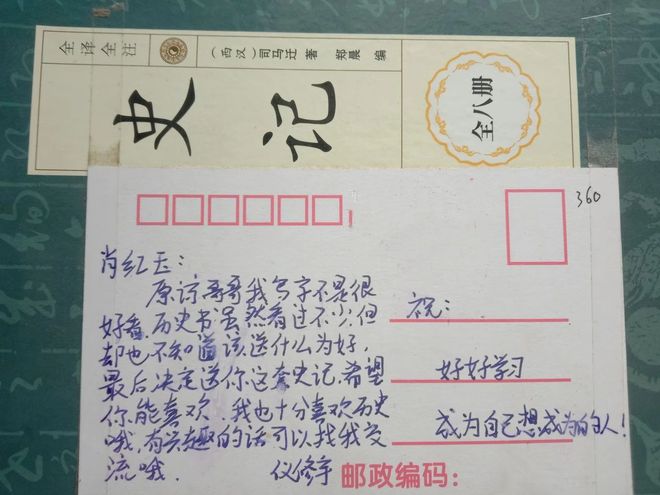 全译全注
(西汉)司马迁 著 郑晨 编
史记
全八册
360
肖红玉:
原谅哥哥我写字不是很
好看.历史书虽然看过不少,但
却也不知道该送什么为好,
最后决定送你这套史记.希望
你能喜欢.我也十分喜欢历史
哦.有兴趣的话可以找我交
流哦.
仪修宇
祝:
好好学习
成为自己想成为的人!
邮政编码: